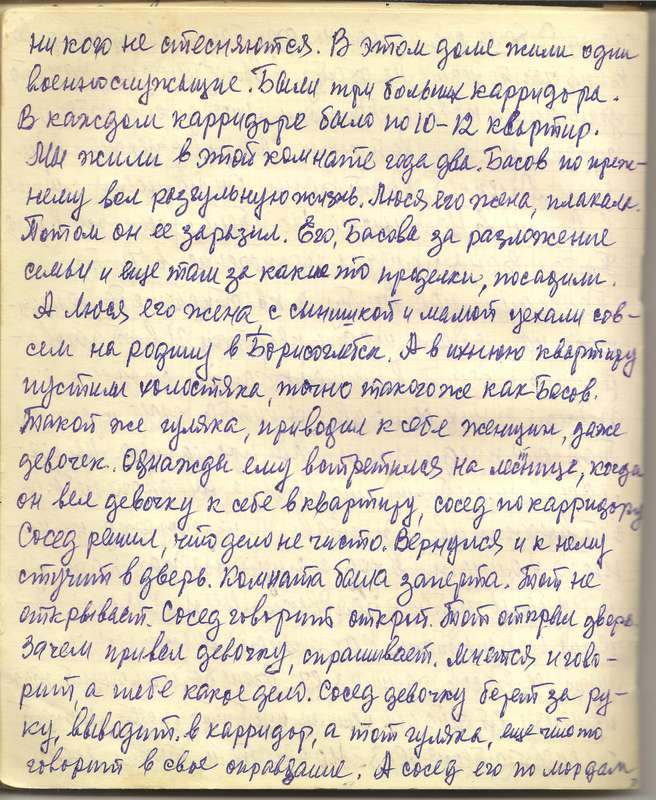 ни кого не стесняются. В этом доме жили одни
военнослужащие. Были три больших карридора.
В каждом карридоре было по 10-12 квартир.
Мы жили в этой комнате года два. Басов по преж-
нему вел разгульную жизнь. Люся его жена, плакала.
Потом он ее заразил. Его, Басова за разложение
семьи и еще там за какие то проделки, посадили.
А Люся его жена, с сынишкой и мамой уехали сов-
сем на родину в Борисоглебск. А в ихнюю квартиру
пустили холостяка, точно такого же как Басов.
Такой же гуляка, приводил к себе женщин, даже
девочек. Однажды ему встретился на лестнице, когда
он вел девочку к себе в квартиру, сосед по карридору
Сосед решил, что дело не чисто. Вернулся и к нему
стучит в дверь. Комната была заперта. Тот не
открывает. Сосед говорит открой. Тот открыл дверь
Зачем привел девочку, спрашивает. Мнется и гово-
рит, а тебе какое дело. Сосед девочку берет за ру-
ку, выводит в карридор, а тот гуляка, еще что то
говорит в свое оправдание. А сосед его по мордам